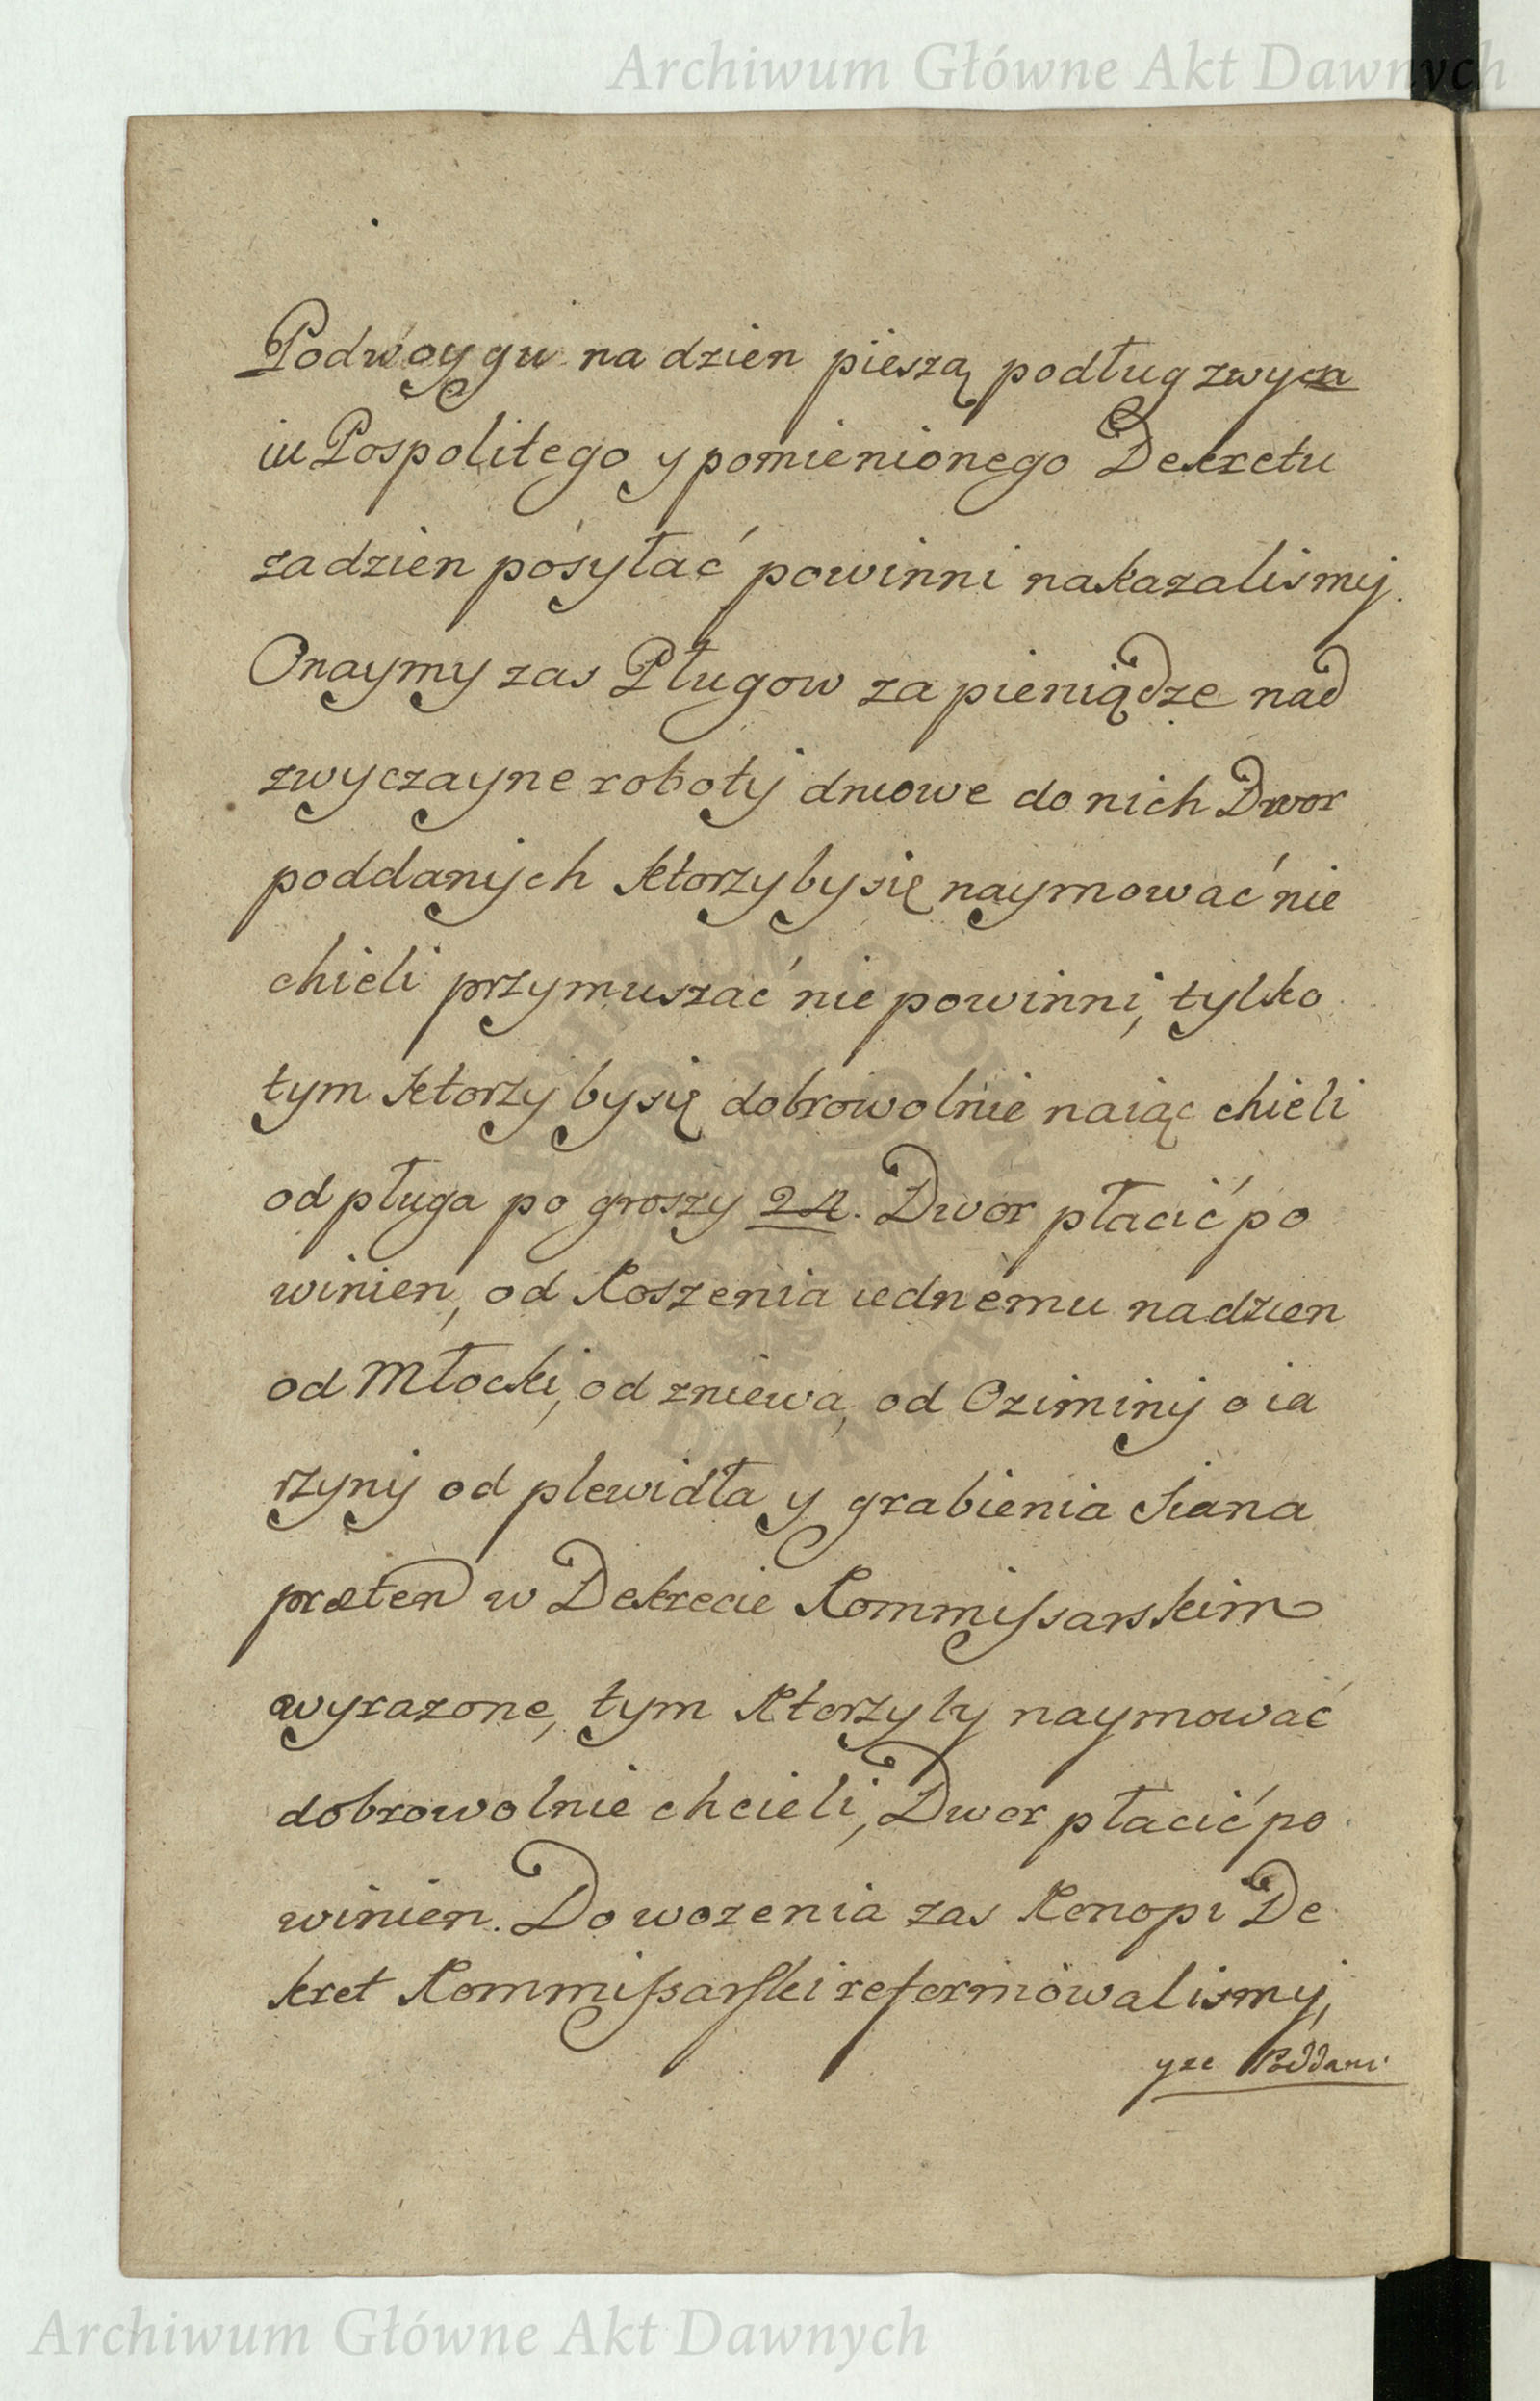 Archiwum Główne Akt Dawnych
Podwoygu na dzien pieszą podług zwycza
iu Pospolitego y pomienionego Dekretu
za dzien posyłać powinni nakazalismy.
Onaymy zas Pługow za pieniądze nad
zwyczayne roboty dniowe do nich Dwor
poddanych ktorzy by się naymować nie
chieli przymuszać nie powinni, tylko
tym ktorzy by się dobrowolnie naiąc chieli
od pługa po groszy 24. Dwor płacić po
winien, od Koszenia iednemu na dzien
od Młocki, od zniewa, od Oziminy o ia
rzyny od plewidła y grabienia Siana
præten w Dekrecie Kommissarskim
wyrazone, tym Ktorzy by naymować
dobrowolnie chcieli, Dwor płacić po
winien. Do wozenia zas Konopi De
kret Kommissarski reformowalismy,
yze Poddani
Archiwum Główne Akt Dawnych